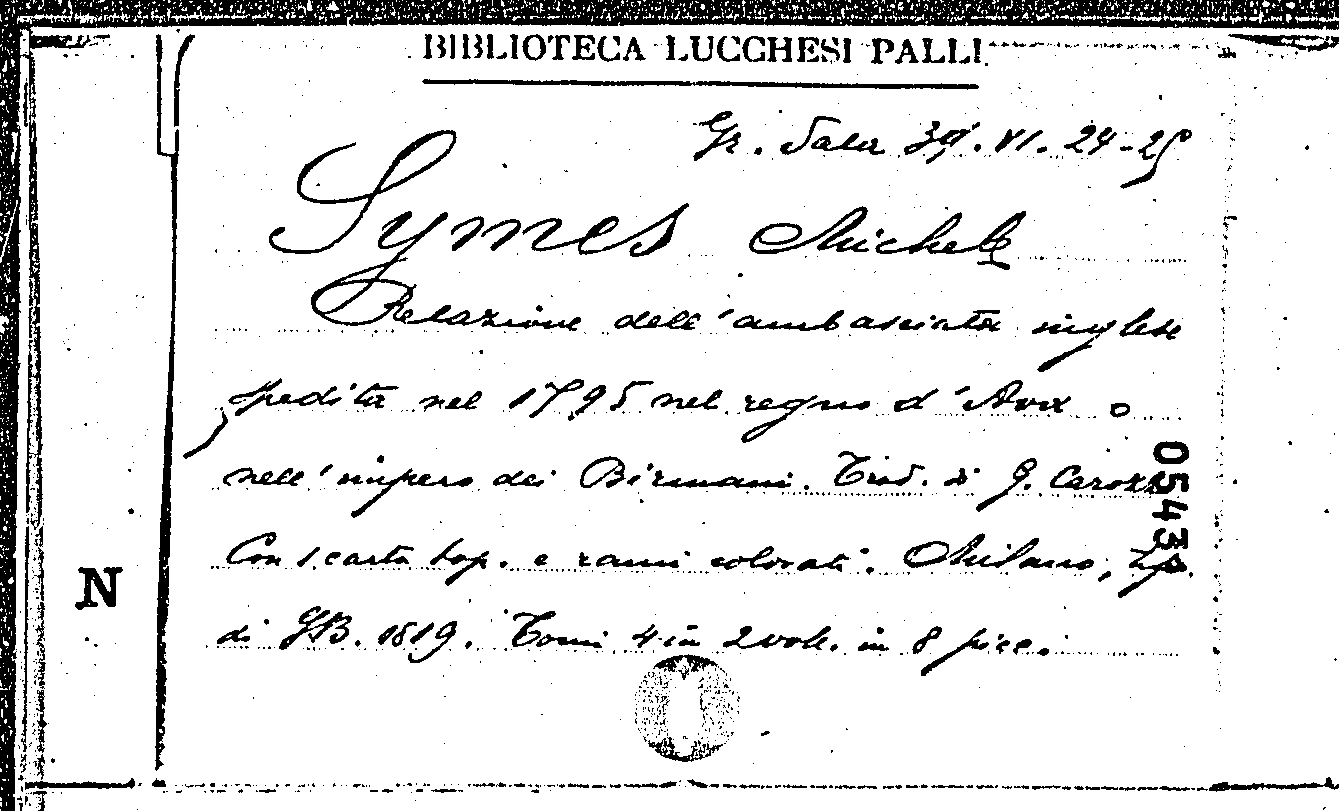 BIBLIOTECA LUCCHESI PALLI
Gr. Sala 39. VI. 24-25
Symes Michele
Relazione dell'ambasciata inglese
spedita nel 1795 nel regno d'Ava o
nell'impero dei Birmani. Trad. di G. Carozzi
Con 1 carta top. e rami colorati. Milano, tip.
di GB. 1819. Tomi 4 in 2 voll. in 8 picc.
N
0543